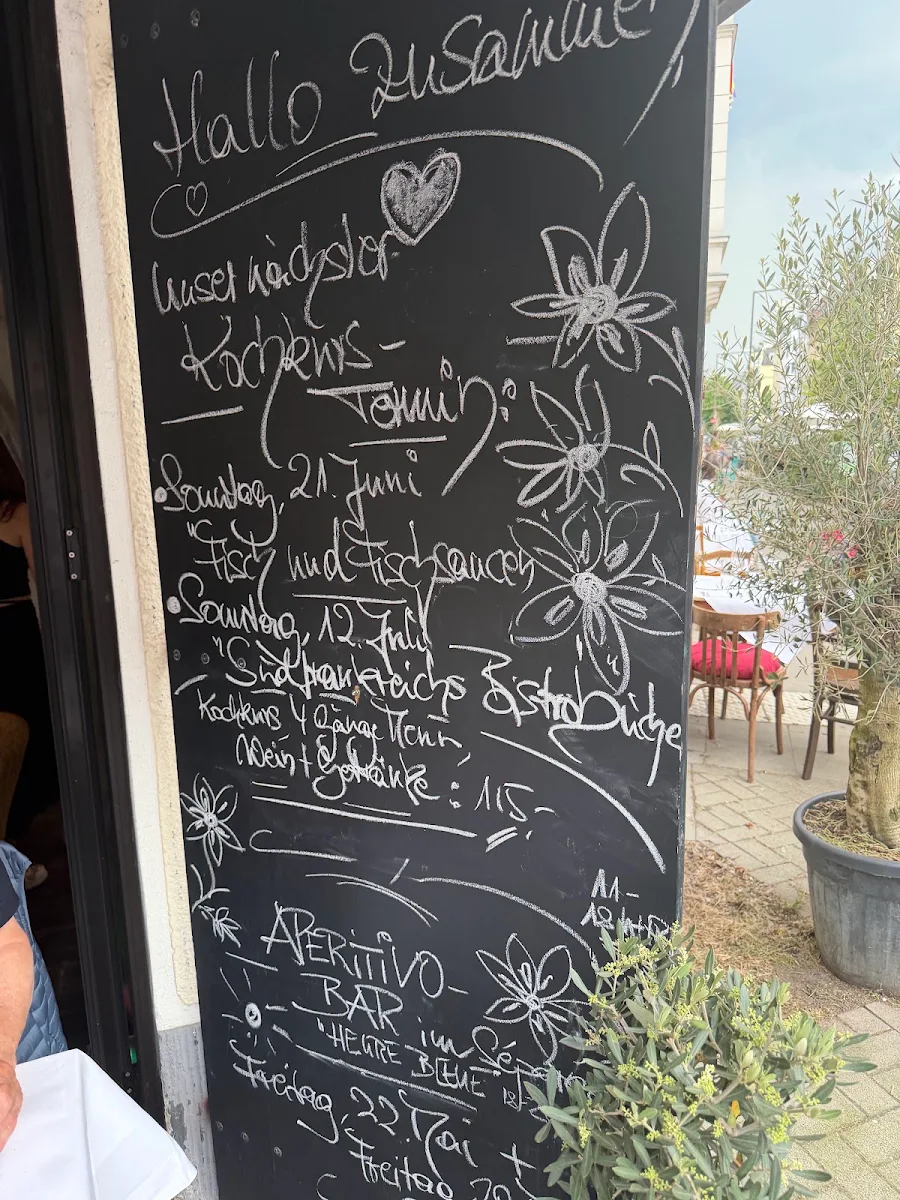 Hallo zusammen
Unser nächster
Kochkurs-
Termin:
Sonntag, 21. Juni
"Fisch und Fischsaucen
Sonntag, 12. Juli
"Südfrankreichs Bistroküche"
Kochkurs 4 Gänge Menü,
Wein + Getränke: 115,-
11-
18
APERITIVO-
BAR
im Sépa
"HEURE BLEUE"
18-
Freitag, 22. Mai +
Freitag